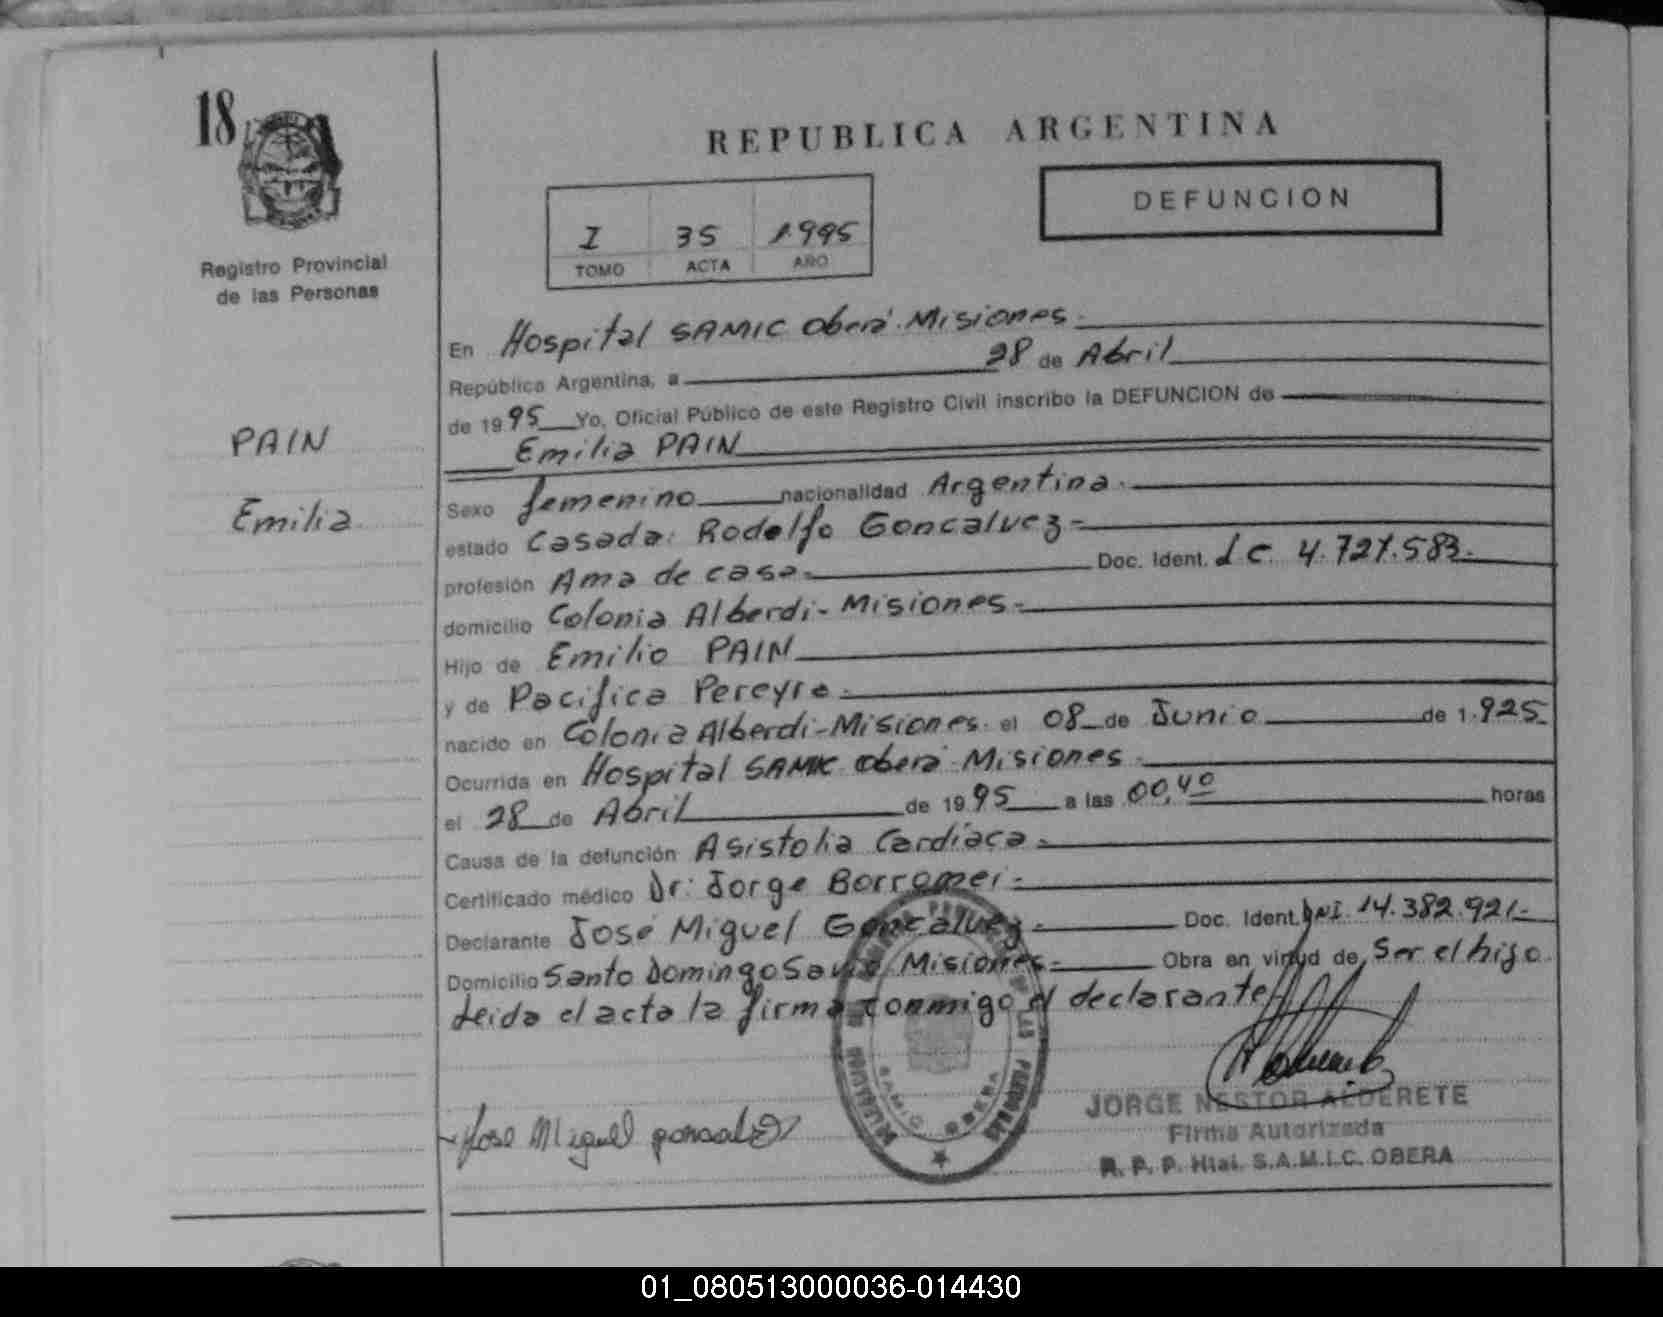 18
REPUBLICA ARGENTINA
DEFUNCION
I 35 1.995
TOMO ACTA AÑO
Registro Provincial
de las Personas
PAIN
Emilia
En Hospital SAMIC Oberá-Misiones.
República Argentina, a 28 de Abril
de 1995 Yo, Oficial Público de este Registro Civil inscribo la DEFUNCION de
Emilia PAIN
Sexo femenino nacionalidad Argentina.
estado Casada: Rodolfo Goncalvez-
profesión Ama de casa. Doc. Ident. L.C. 4.727.583.
domicilio Colonia Alberdi-Misiones-
Hijo de Emilio PAIN
y de Pacifica Pereyra.
nacido en Colonia Alberdi-Misiones. el 08 de Junio de 1.925
Ocurrida en Hospital SAMIC Oberá-Misiones
el 28 de Abril de 1995 a las 00,40 horas
Causa de la defunción Asistolia Cardíaca.
Certificado médico Dr: Jorge Borromei-
Declarante José Miguel Goncalvez- Doc. Ident. DNI. 14.382.921-
Domicilio Santo Domingo Savio Misiones- Obra en virtud de Ser el hijo.
Leida el acta la firma conmigo el declarante
Jose Miguel gonsalez
JORGE NESTOR ALDERETE
Firma Autorizada
R. P. P. Htal. S.A.M.I.C. OBERA
SAMIC OBERA
01_080513000036-014430